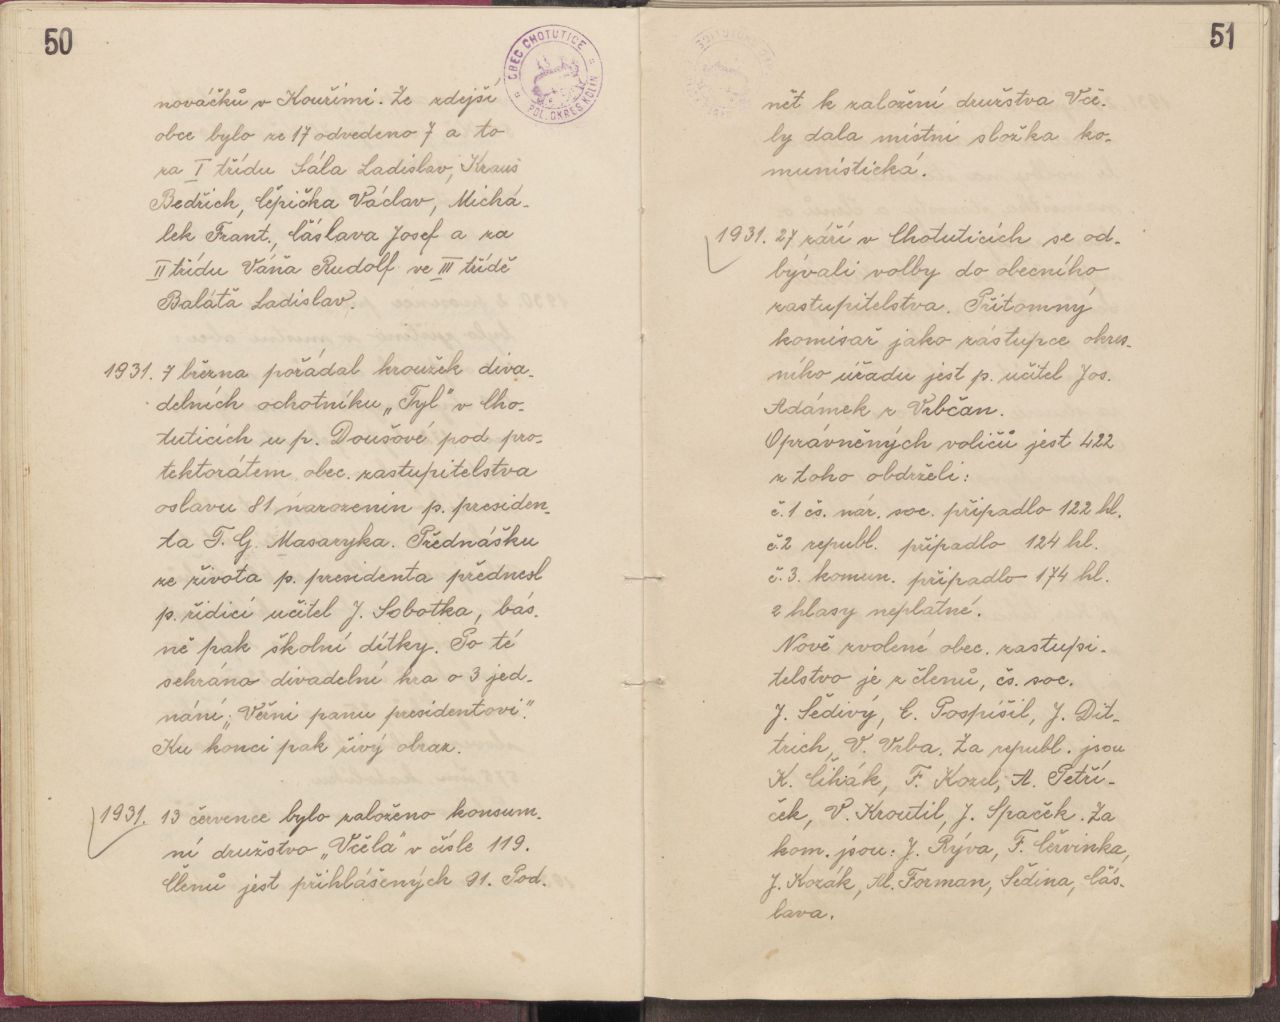 50
OBEC CHOTUTICE
POL. OKRES KOLÍN
nováčků v Kouřimi. Ze zdejší
obce bylo ze 17 odvedeno 7 a to
za I třídu Sála Ladislav, Kraus
Bedřich, Čepička Václav, Michá-
lek Frant., Čáslava Josef a za
II třídu Váňa Rudolf ve III třídě
Baláťa Ladislav.
1931. 7 března pořádal kroužek diva-
delních ochotníku „Tyl" v Cho-
tuticích u p. Doušové pod pro-
tektorátem obec. zastupitelstva
oslavu 81 narozenin p. presiden-
ta T. G. Masaryka. Přednášku
ze života p. presidenta přednesl
p. řidicí učitel J. Sobotka, bás-
ně pak školní dítky. Po té
sehrána divadelní hra o 3 jed-
nání; „Věrni panu presidentovi".
Ku konci pak živý obraz.
1931. 13 července bylo založeno konsum-
ní družstvo „Včela" v čísle 119.
Členů jest přihlášených 91. Pod-
51
nět k založení družstva Vče-
ly dala místní složka ko-
munistická.
1931. 27 září v Chotuticích se od-
bývali volby do obecního
zastupitelstva. Přítomný
komisař jako zástupce okres-
ního úřadu jest p. učitel Jos.
Adámek z Vrbčan.
Oprávněných voličů jest 422
z toho obdrželi:
č. 1 čs. nár. soc. připadlo 122 hl.
č. 2 republ. připadlo 124 hl.
č. 3. komun. připadlo 174 hl.
2 hlasy neplatné.
Nově zvolené obec. zastupi-
telstvo je z členů, čs. soc.
J. Šedivý, Č. Pospíšil, J. Dit-
trich, V. Vrba. Za republ. jsou
K. Čihák, F. Kozel, A. Petří-
ček, V. Kroutil, J. Spaček. Za
kom. jsou: J. Rýva, F. Červinka,
J. Kozák, Al. Forman, Šedina, Čás-
lava.